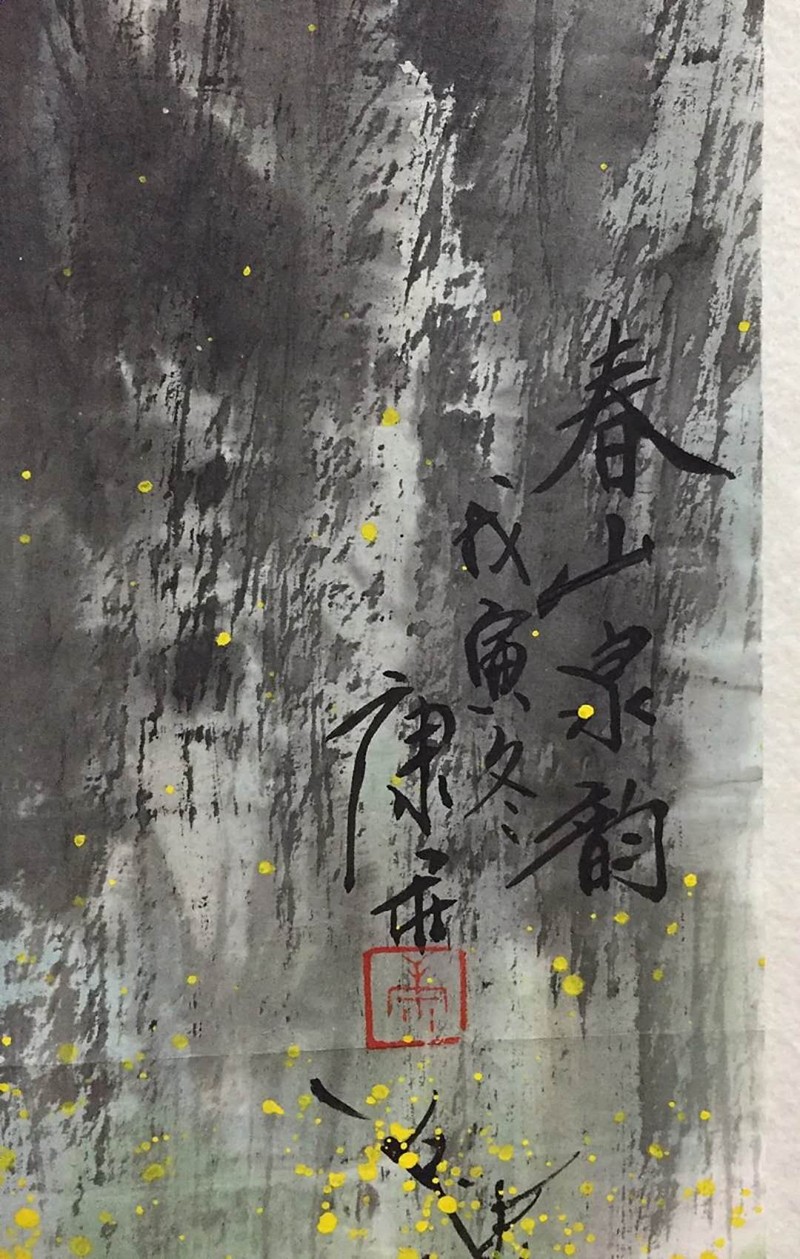 春山泉韵
戊寅冬
康